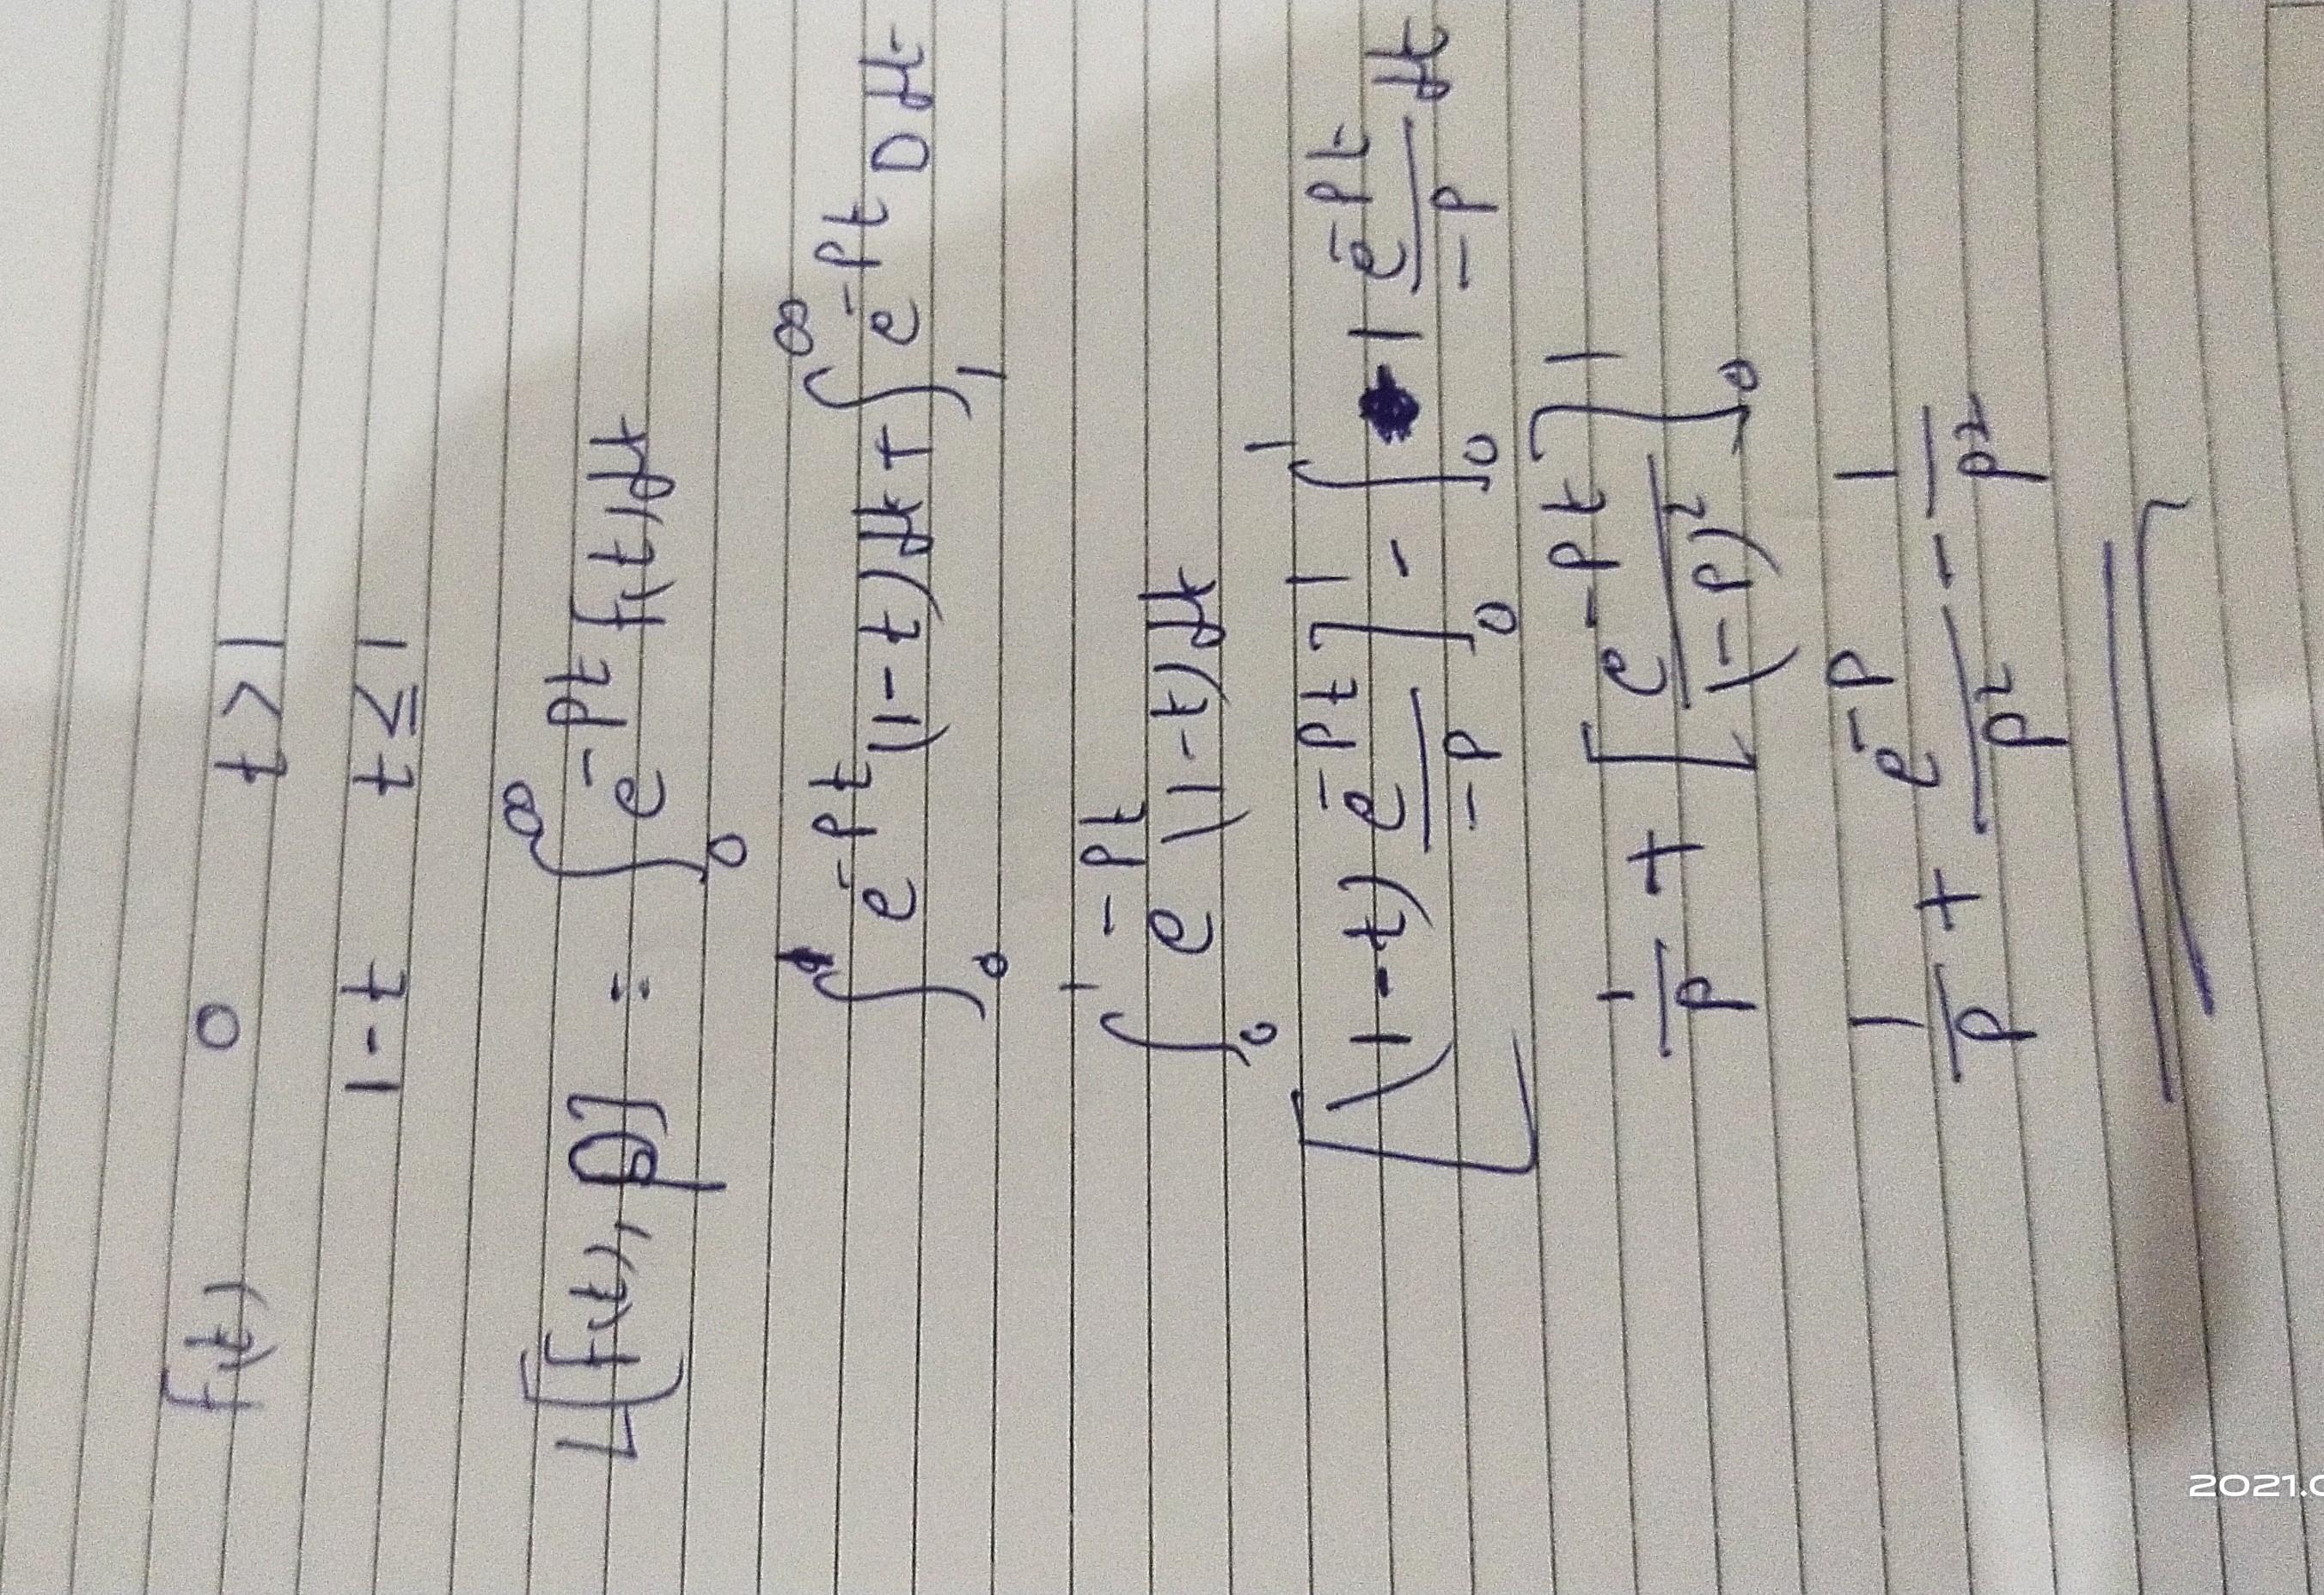 f(t) 0 t>1
1-t t≤1
L[f(t), p] = ∫₀^∞ e^{-pt} f(t) dt
∫₀ e^{-pt} (1-t) dt + ∫₁^∞ e^{-pt} 0 dt
∫₀^1 e^{-pt} (1-t) dt
[(1-t) e^{-pt}/-p]₀^1 - ∫₀^1 1 e^{-pt}/-p dt
1/p + [e^{-pt}/(-p)²]₀^1
1/p + e^{-p}/p² - 1/p²
2021.0